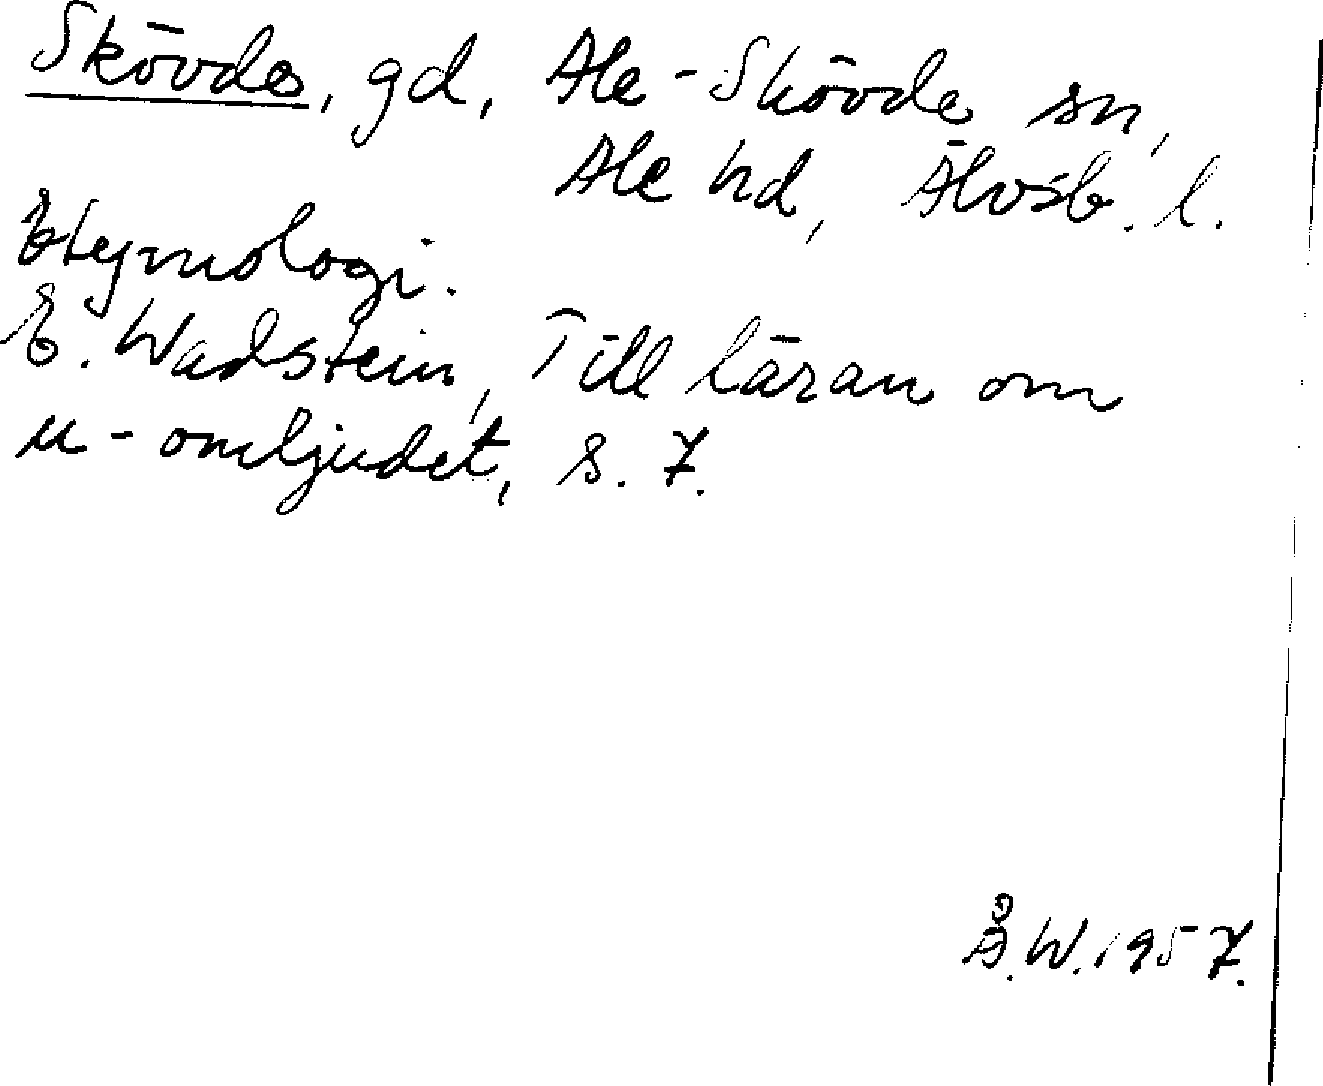 Skövde, gd, Ale-Skövde sn,
Ale hd, Älvsb. l.
Etymologi.
E. Wadstein, Till läran om
u-omljudet, s. 7.
Å.W. 1957.